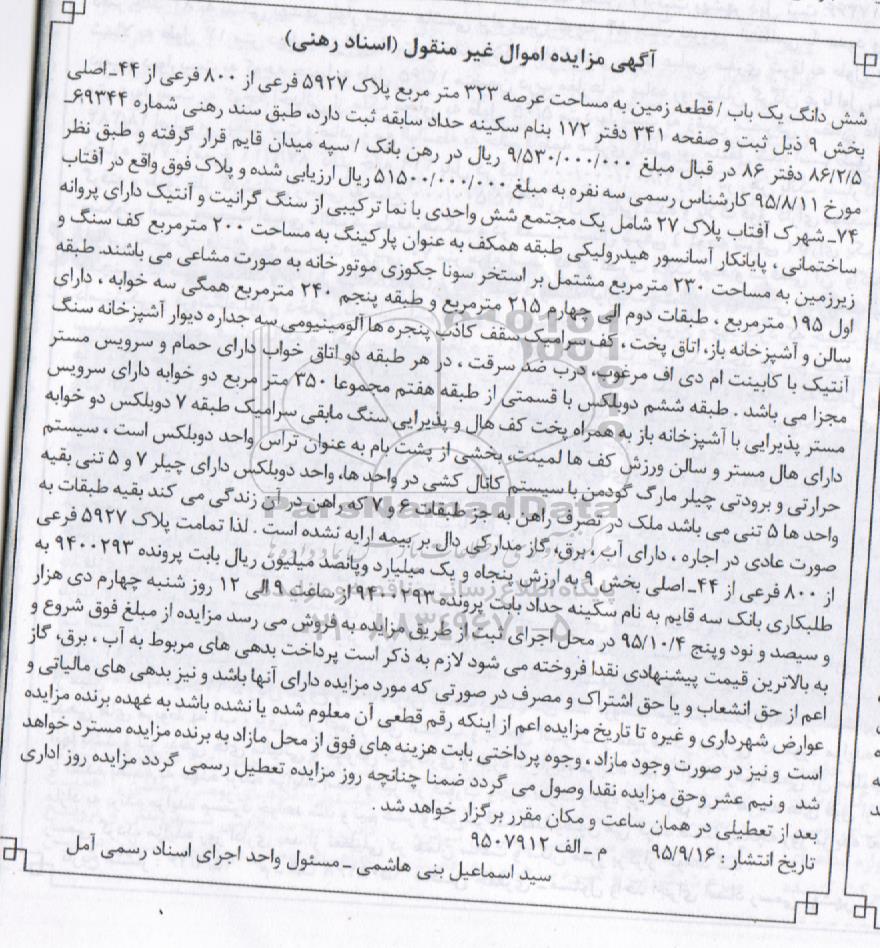 آگهی مزایده اموال غیر منقول (اسناد رهنی)
شش دانگ یک باب / قطعه زمین به مساحت عرصه ۳۲۳ متر مربع پلاک ۵۹۲۷ فرعی از ۸۰۰ فرعی از ۴۴ـ اصلی
بخش ۹ ذیل ثبت و صفحه ۳۴۱ دفتر ۱۷۲ بنام سکینه حداد سابقه ثبت دارد، طبق سند رهنی شماره ۶۹۳۴۴ـ
۸۶/۲/۵ دفتر ۸۶ در قبال مبلغ ۹/۵۳۰/۰۰۰/۰۰۰ ریال در رهن بانک / سپه میدان قایم قرار گرفته و طبق نظر
مورخ ۹۵/۸/۱۱ کارشناس رسمی سه نفره به مبلغ ۵۱۵۰۰/۰۰۰/۰۰۰ ریال ارزیابی شده و پلاک فوق واقع در آفتاب
۷۴ـ شهرک آفتاب پلاک ۲۷ شامل یک مجتمع شش واحدی با نما ترکیبی از سنگ گرانیت و آنتیک دارای پروانه
ساختمانی ، پایانکار آسانسور هیدرولیکی ، طبقه همکف به عنوان پارکینگ به مساحت ۲۰۰ مترمربع کف سنگ و
زیرزمین به مساحت ۲۳۰ مترمربع مشتمل بر ، استخر سونا جکوزی موتور خانه به صورت مشاعی می باشند. طبقه
اول ۱۹۵ مترمربع ، طبقات دوم الی چهارم ۲۱۵ مترمربع و طبقه پنجم ۲۴۰ مترمربع همگی سه خوابه ، دارای
سالن و آشپزخانه باز، اتاق پخت ، کف سرامیک سقف کاذب پنجره ها آلومینیومی سه جداره دیوار آشپزخانه سنگ
آنتیک با کابینت ام دی اف مرغوب، درب ضد سرقت ، در هر طبقه دو اتاق خواب دارای حمام و سرویس مستر
مجزا می باشد . طبقه ششم دوبلکس با قسمتی از طبقه هفتم مجموعا ۳۵۰ متر مربع دو خوابه دارای سرویس
مستر پذیرایی با آشپزخانه باز به همراه پخت کف هال و پذیرایی سنگ مابقی سرامیک طبقه ۷ دوبلکس دو خوابه
دارای هال مستر و سالن ورزش کف ها لمینت، بخشی از پشت بام به عنوان تراس واحد دوبلکس است ، سیستم
حرارتی و برودتی چیلر مارک گودمن با سیستم کانال کشی در واحد ها، واحد دوبلکس دارای چیلر ۷ و ۵ تنی بقیه
واحد ها ۵ تنی می باشد ملک در تصرف راهن به جز طبقات ۶ و ۷ که راهن در آن زندگی می کند بقیه طبقات به
صورت عادی در اجاره ، دارای آب ، برق، گاز مدارکی دال بر بیمه ارایه نشده است . لذا تمامت پلاک ۵۹۲۷ فرعی
از ۸۰۰ فرعی از ۴۴ـ اصلی بخش ۹ به ارزش پنجاه و یک میلیارد وپانصد میلیون ریال بابت پرونده ۹۴۰۰۲۹۳ به
طلبکاری بانک سه قایم به نام سکینه حداد بابت پرونده ۹۴۰۰۲۹۳ از ساعت ۹ الی ۱۲ روز شنبه چهارم دی هزار
و سیصد و نود وپنج ۹۵/۱۰/۴ در محل اجرای ثبت از طریق مزایده به فروش می رسد مزایده از مبلغ فوق شروع و
به بالاترین قیمت پیشنهادی نقدا فروخته می شود لازم به ذکر است پرداخت بدهی های مربوط به آب ، برق، گاز
اعم از حق انشعاب و یا حق اشتراک و مصرف در صورتی که مورد مزایده دارای آنها باشد و نیز بدهی های مالیاتی و
عوارض شهرداری و غیره تا تاریخ مزایده اعم از اینکه رقم قطعی آن معلوم شده یا نشده باشد به عهده برنده مزایده
است و نیز در صورت وجود مازاد ، وجوه پرداختی بابت هزینه های فوق از محل مازاد به برنده مزایده مسترد خواهد
شد و نیم عشر وحق مزایده نقدا وصول می گردد ضمنا چنانچه روز مزایده تعطیل رسمی گردد مزایده روز اداری
بعد از تعطیلی در همان ساعت و مکان مقرر برگزار خواهد شد .
تاریخ انتشار : ۹۵/۹/۱۶ م ـ الف ۹۵۰۷۹۱۲
سید اسماعیل بنی هاشمی ـ مسئول واحد اجرای اسناد رسمی آمل
ParsNamadData